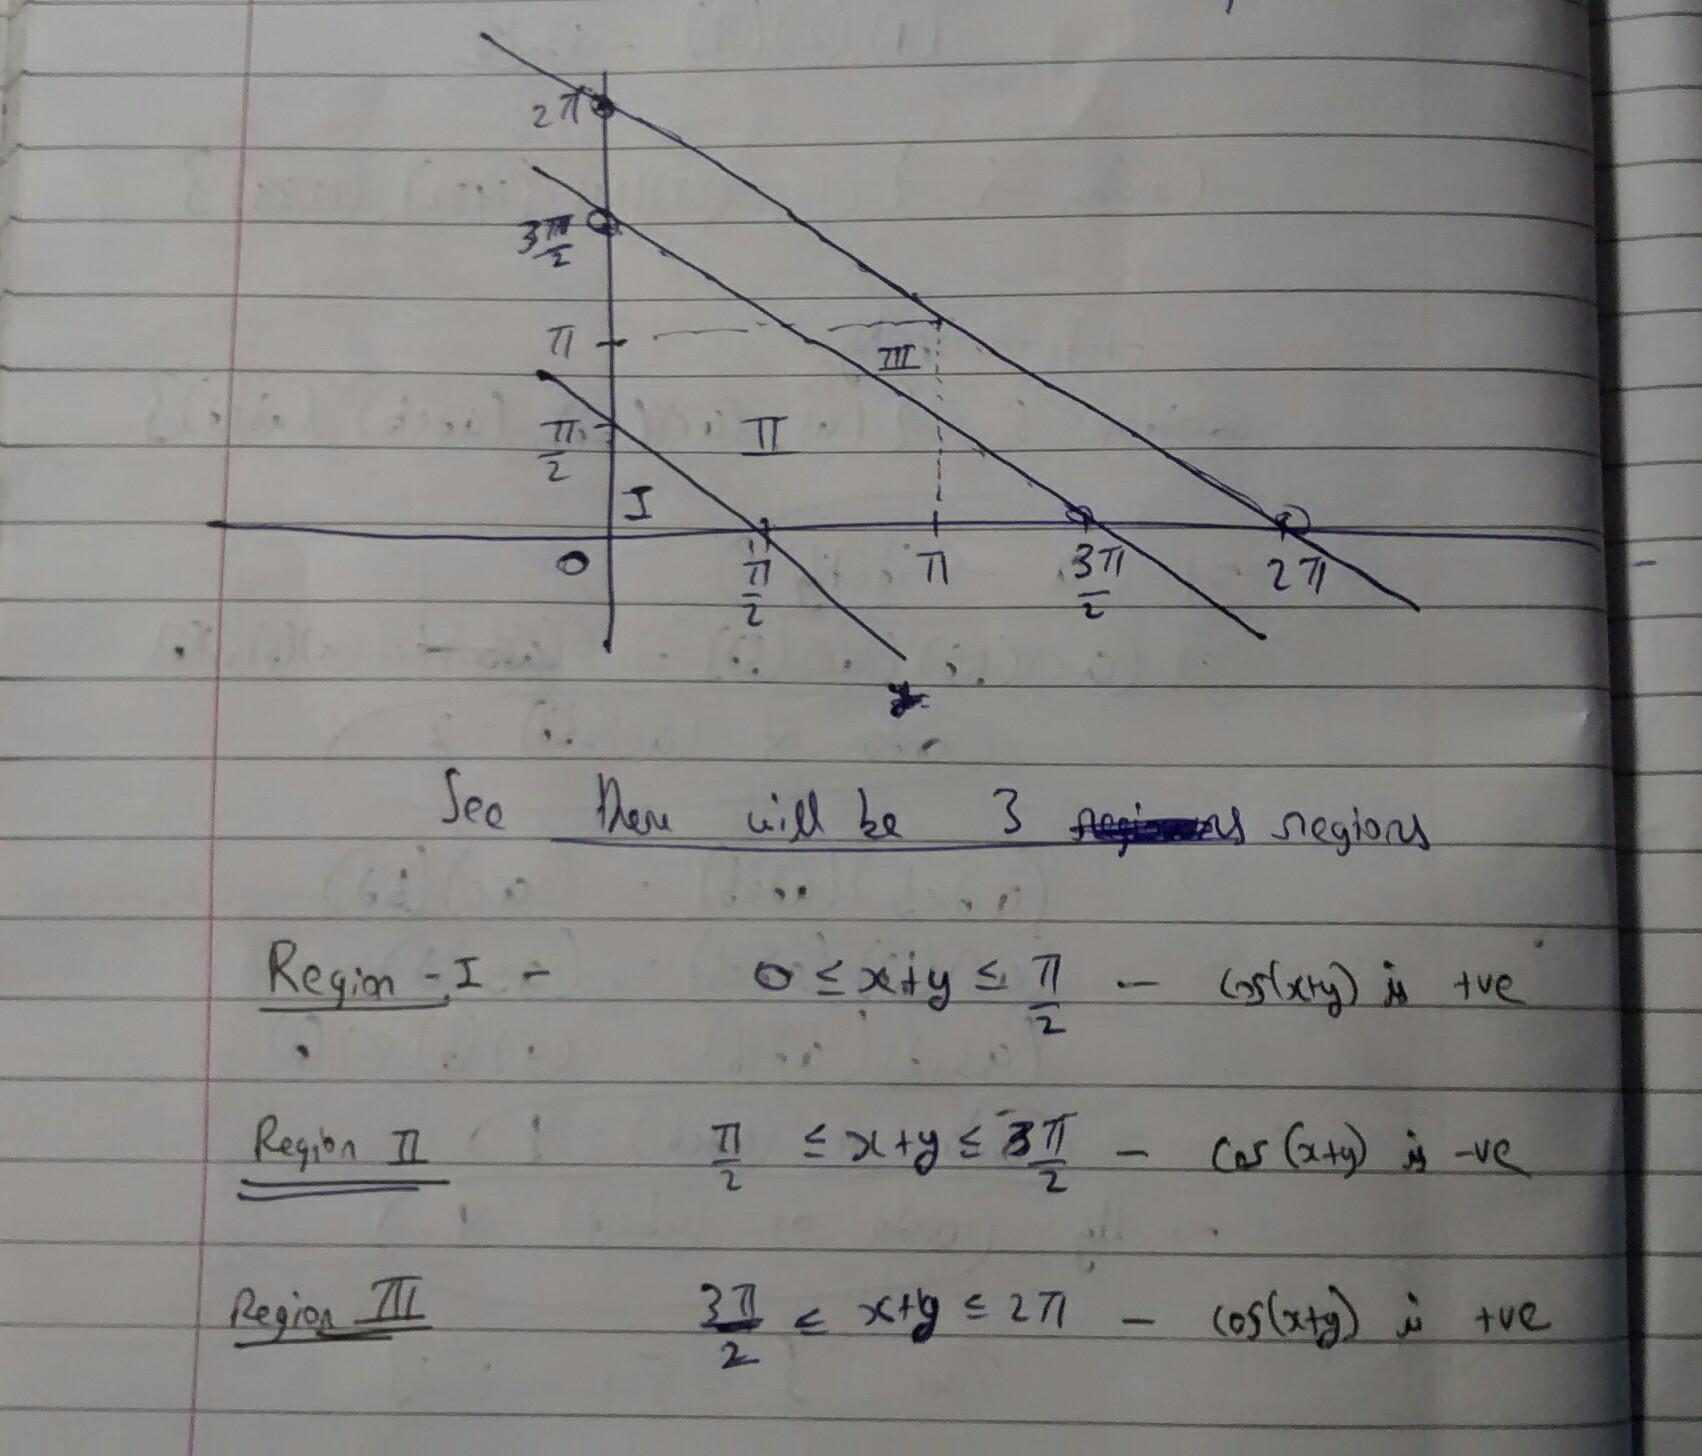 2π
3π/2
π
III
π/2
II
I
O π/2 π 3π/2 2π
See there will be 3 regions
Region - I - 0 ≤ x+y ≤ π/2 - cos(x+y) is +ve
Region II π/2 ≤ x+y ≤ 3π/2 - cos(x+y) is -ve
Region III 3π/2 ≤ x+y ≤ 2π - cos(x+y) is +ve